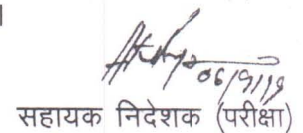 06/9/19
सहायक निदेशक (परीक्षा)